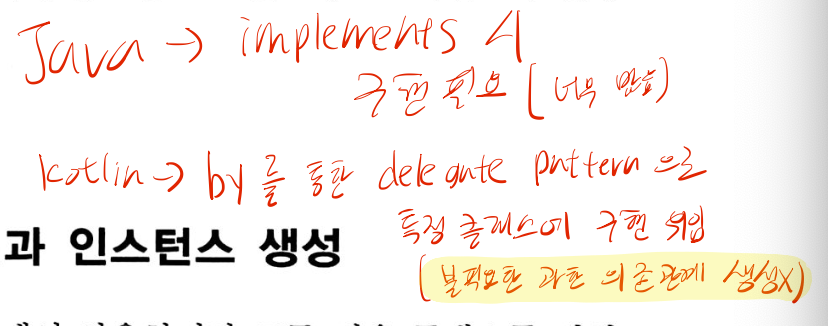 Java → implements 시
구현 필요 (너무 많음)
kotlin → by 를 통한 delegate pattern 으로
특정 클래스에 구현 위임
과 인스턴스 생성
(불필요한 과한 의존관계 생성X)